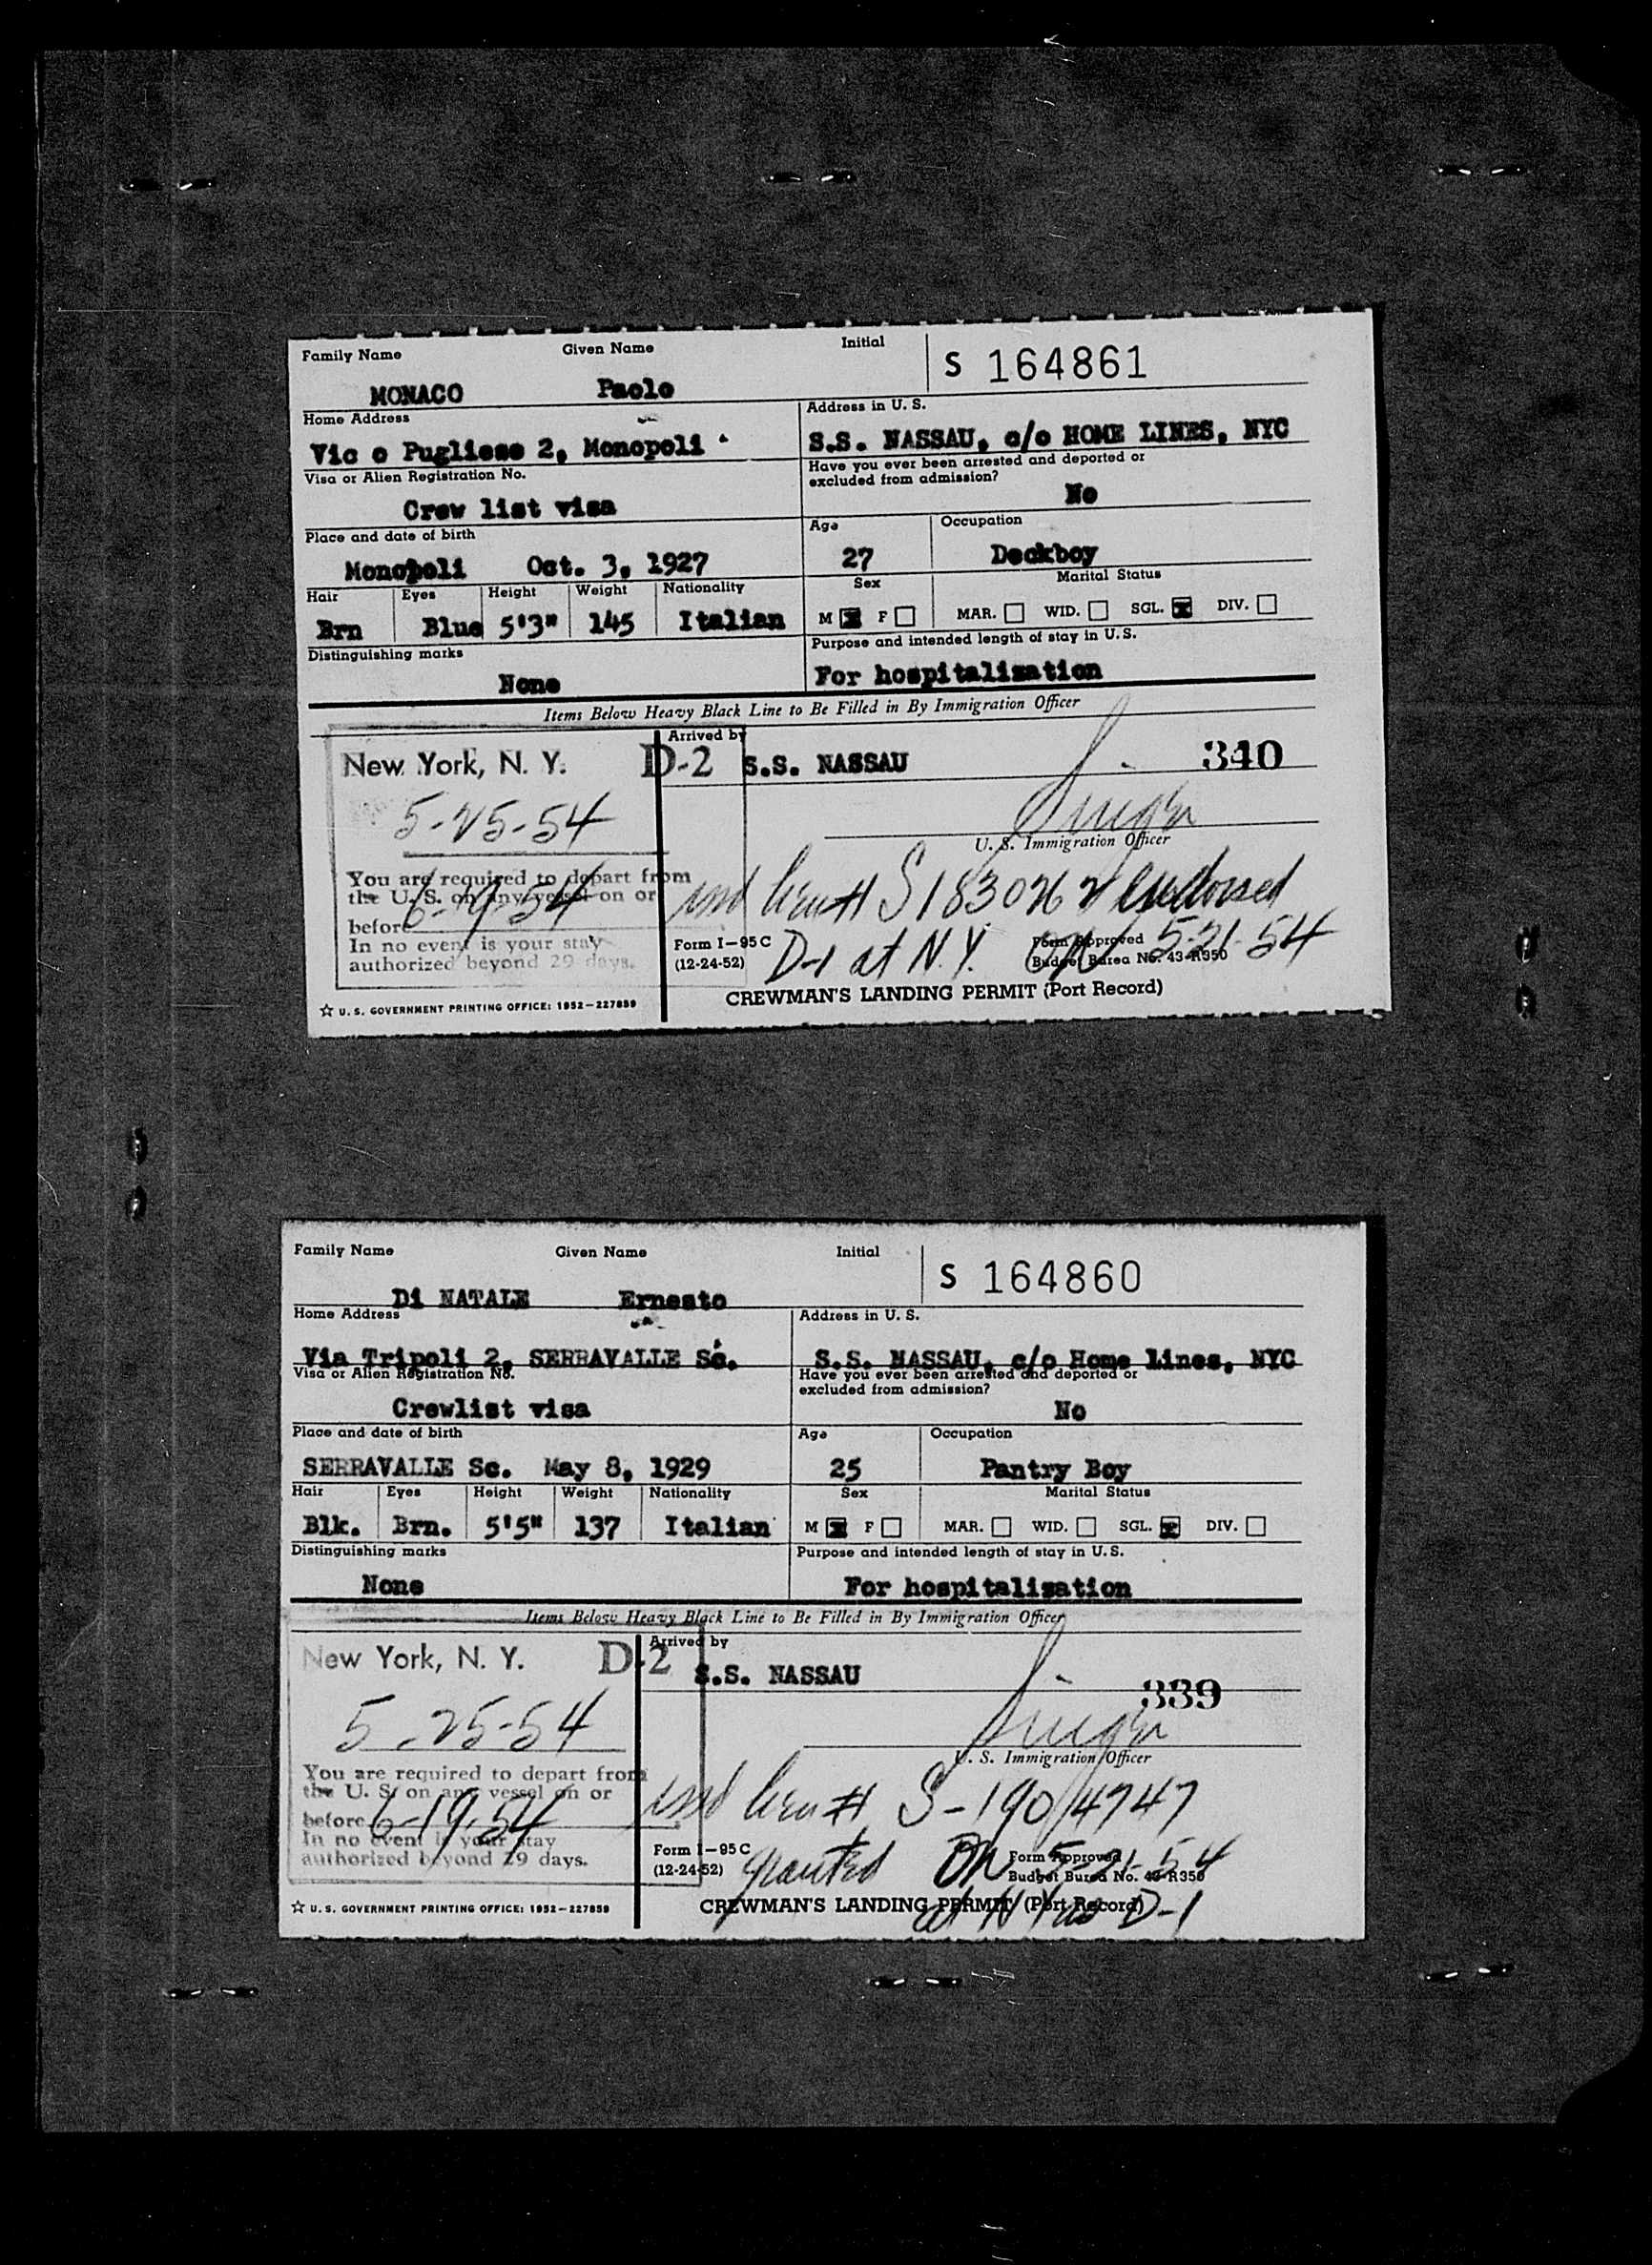 Family Name Given Name Initial S 164861
MONACO Paolo
Home Address Address in U. S.
Vic o Pugliese 2, Monopoli S.S. NASSAU, c/o HOME LINES, NYC
Visa or Alien Registration No. Have you ever been arrested and deported or
excluded from admission?
Crew list visa No
Place and date of birth Age Occupation
Monopoli Oct. 3, 1927 27 Deckboy
Hair Eyes Height Weight Nationality Sex Marital Status
Brn Blue 5'3" 145 Italian M F MAR. WID. SGL. DIV.
Distinguishing marks Purpose and intended length of stay in U. S.
None For hospitalization
Items Below Heavy Black Line to Be Filled in By Immigration Officer
Arrived by
New York, N. Y. D-2 S.S. NASSAU 340
5-25-54
U. S. Immigration Officer
You are required to depart from
the U. S. on any vessel on or
before 6-19-54
endorsed
In no event is your stay
authorized beyond 29 days.
Form I-95C
(12-24-52)
D-1 at N.Y. 5-21-54
Form Approved
Budget Bureau No. 43-R350
☆ U. S. GOVERNMENT PRINTING OFFICE: 1952-227859
CREWMAN'S LANDING PERMIT (Port Record)
Family Name Given Name Initial S 164860
Di NATALE Ernesto
Home Address Address in U. S.
Via Tripoli 2, SERRAVALLE Sc. S.S. NASSAU, c/o Home Lines, NYC
Visa or Alien Registration No. Have you ever been arrested and deported or
excluded from admission?
Crewlist visa No
Place and date of birth Age Occupation
SERRAVALLE Sc. May 8, 1929 25 Pantry Boy
Hair Eyes Height Weight Nationality Sex Marital Status
Blk. Brn. 5'5" 137 Italian M F MAR. WID. SGL. DIV.
Distinguishing marks Purpose and intended length of stay in U. S.
None For hospitalization
Items Below Heavy Black Line to Be Filled in By Immigration Officer
Arrived by
New York, N. Y. D-2 S.S. NASSAU 339
5-25-54
U. S. Immigration Officer
You are required to depart from
the U. S. on any vessel on or
before 6-19-54
In no event is your stay
authorized beyond 29 days.
Form I-95C
(12-24-52)
granted on 5-21-54
Form Approved
Budget Bureau No. 43-R350
☆ U. S. GOVERNMENT PRINTING OFFICE: 1952-227859
CREWMAN'S LANDING PERMIT (Port Record)
at N Y as D-1